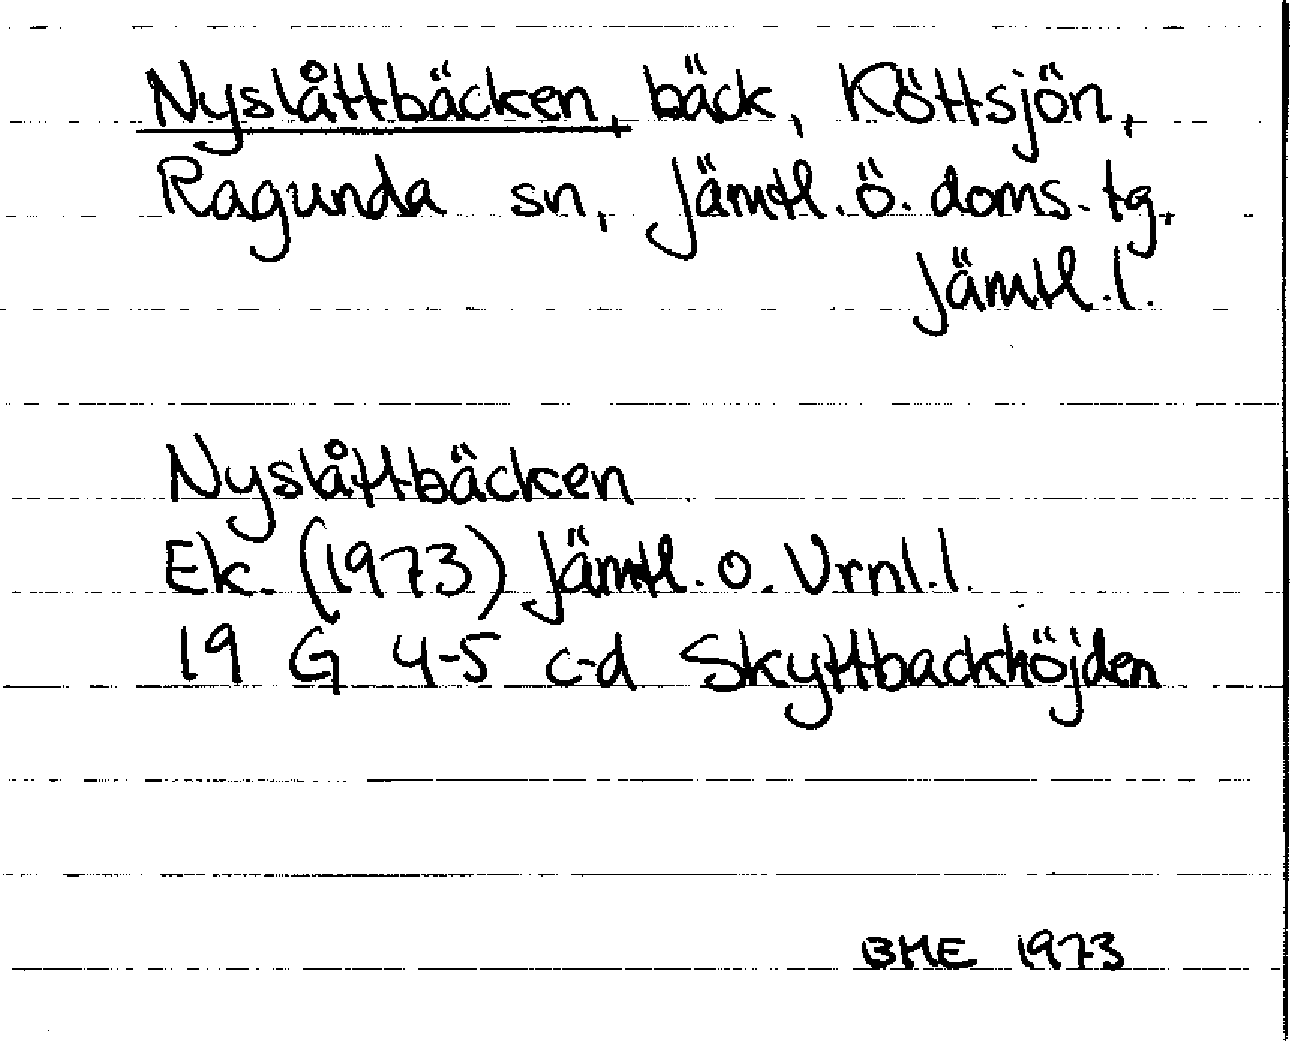 Nyslåttbäcken, bäck, Köttsjön,
Ragunda sn, Jämtl. ö. doms. tg,
Jämtl. l.
Nyslåttbäcken
Ek. (1973) Jämtl. o. Vrnl. l.
19 G 4-5 c-d Skyttbackhöjden
BME 1973